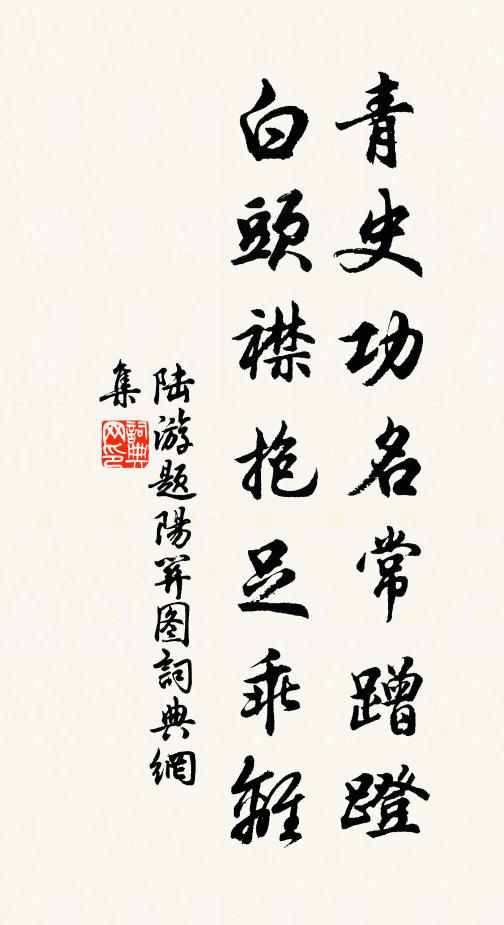 青史功名常蹭蹬
白頭襟抱足乖離
陆游題陽関图詞典網
集
詞典
网印